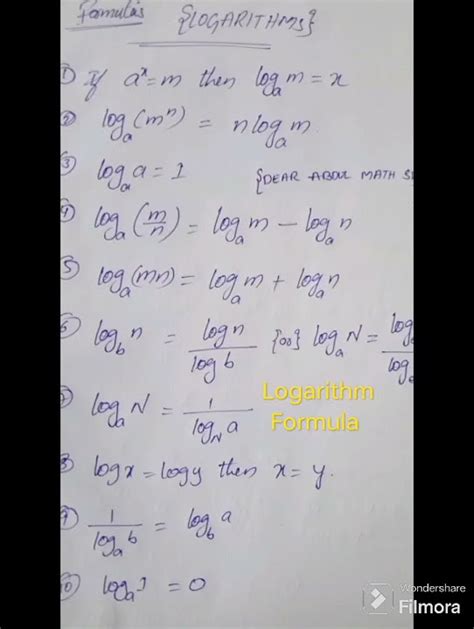 Formulas {LOGARITHMS}
① If aˣ = m then logₐ m = x
② logₐ (mⁿ) = n logₐ m.
③ logₐ a = 1 {DEAR ABDUL MATH S
④ logₐ (m/n) = logₐ m − logₐ n
⑤ logₐ (mn) = logₐ m + logₐ n
⑥ log_b n = log n / log b {∞} logₐ N = log / log
⑦ logₐ N = 1 / log_N a
Logarithm
Formula
⑧ log x = log y then x = y.
⑨ 1 / logₐ b = log_b a
⑩ logₐ 1 = 0
Wondershare
Filmora